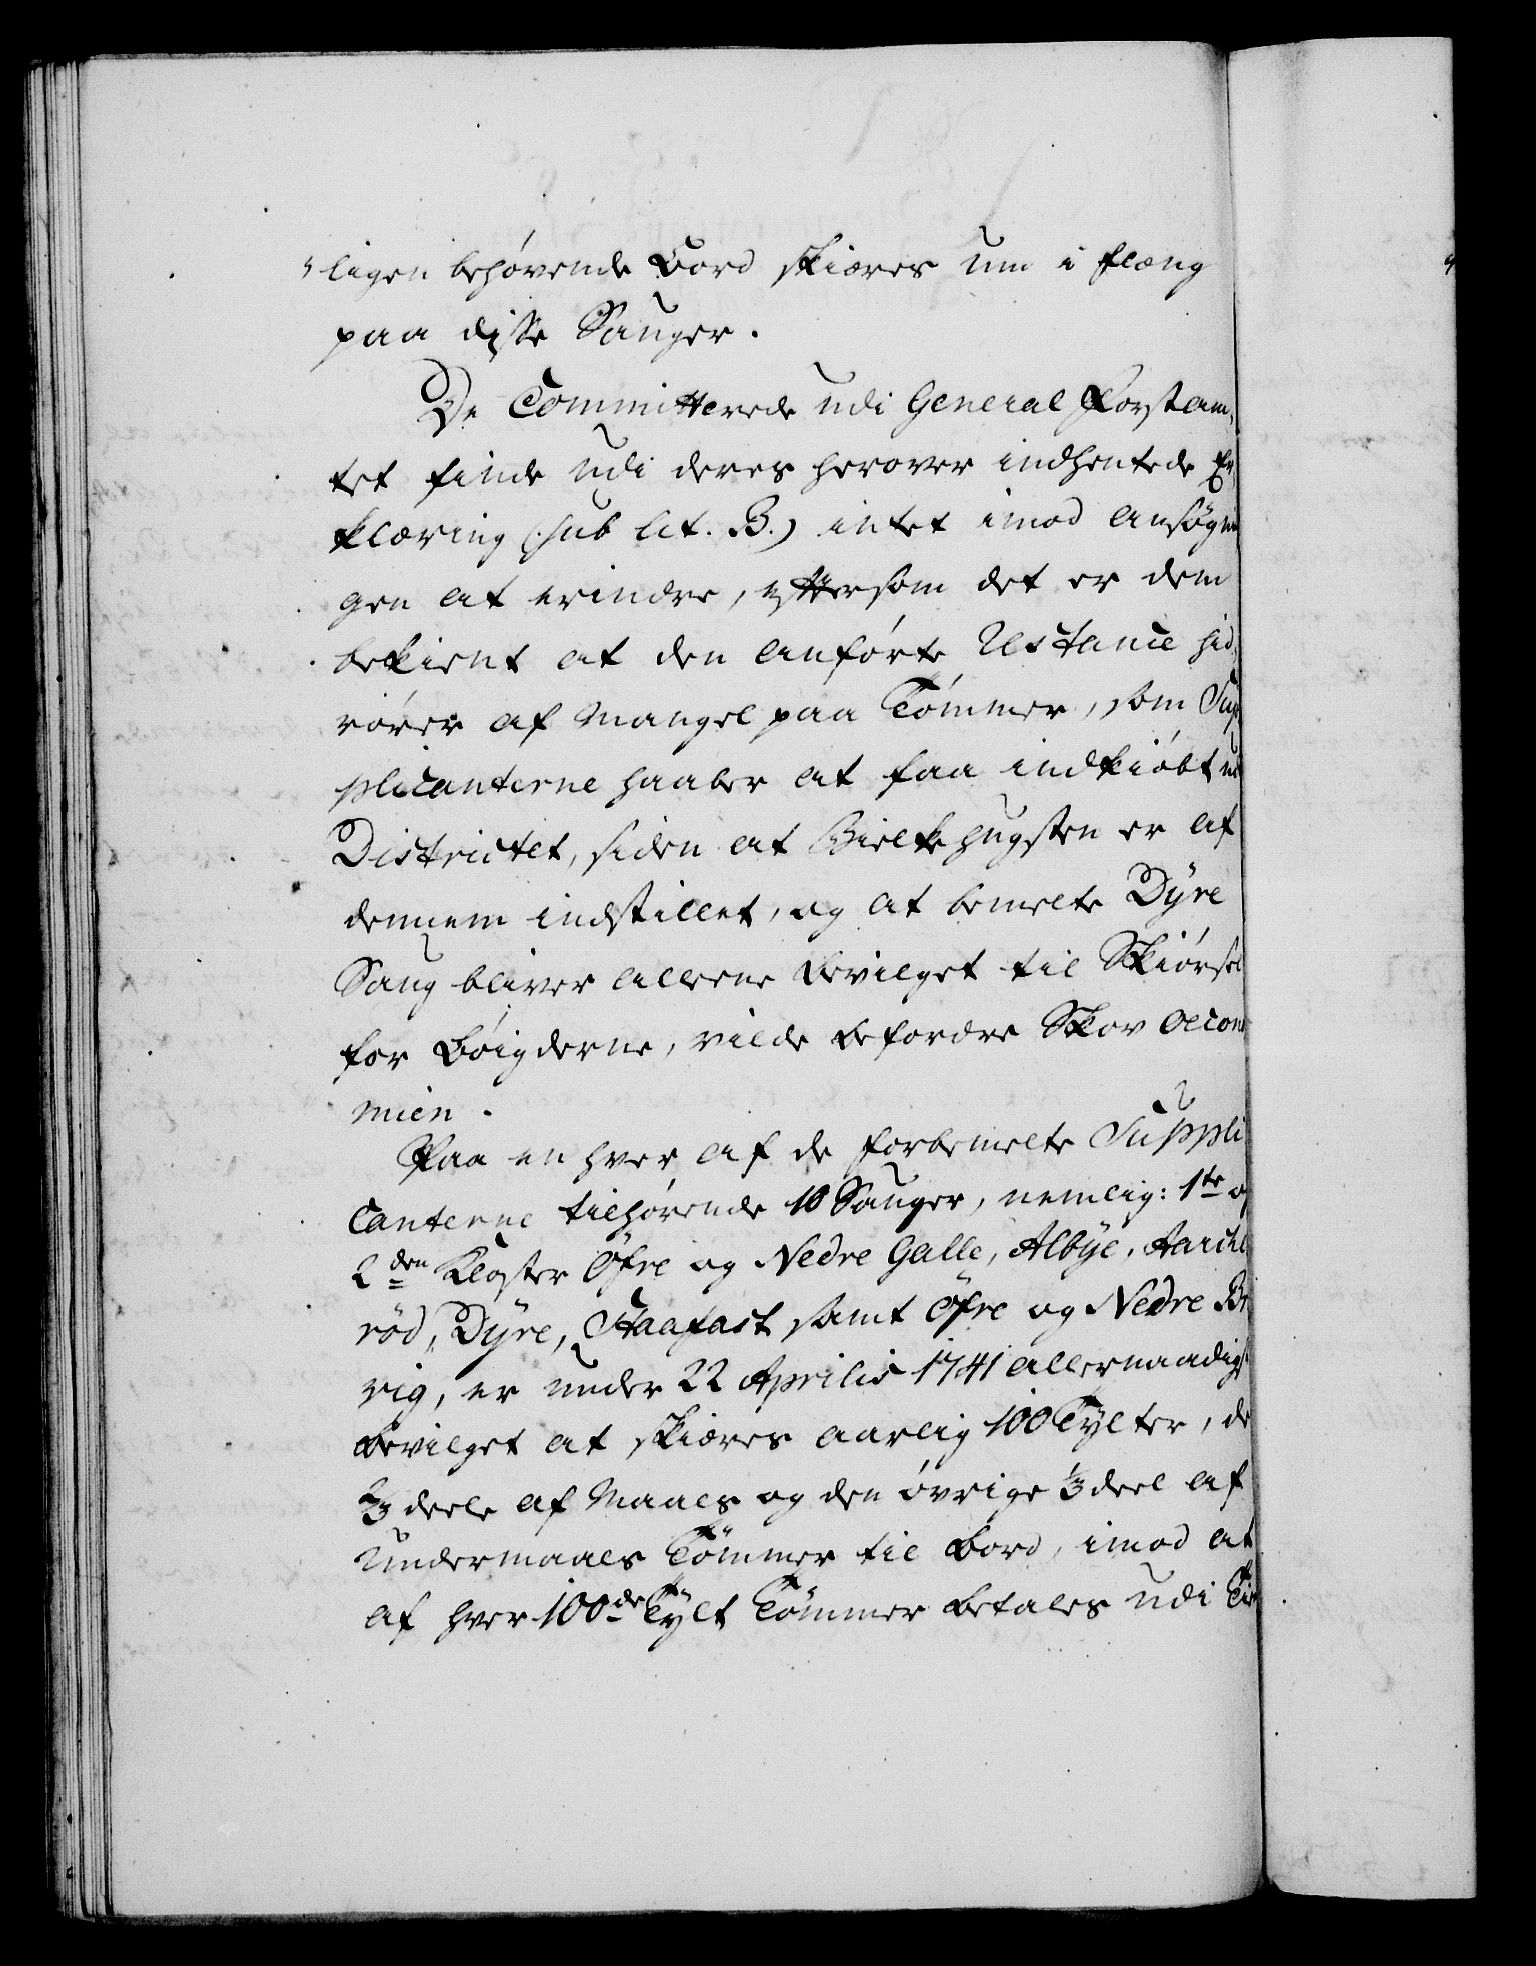 ligen behøvende Bord skiæres um i flæng
paa disse Sauger.
De Committerede udi General Forstam,
tet finde udi deres herover indhentede Er
klæring (sub Lit. B.) intet imod Ansøgnin
gen at erindre, eftersom det er dem
bekient at den anførte Restance hid,
rører af Mangel paa Tømmer, som Sup
plicanterne haaber at faa indkiøbt udi
Districtet, siden at Bielkehugsten er af
dennem indstillet, og at bemelte Dyre
Saug bliver alleene bevilget til Skiørsel
for Bøigderne, vilde befordre Skov Oecono
mien.
Paa en hver af de forbemelte Suppli
canterne tilhørende 10 Sauger, nemlig: 1te og
2den Kloster Øfre og Nedre Galle, Albye,
rød, Dyre, Staafast samt Øfre og Nedre Br
vig, er under 22 Aprilis 1741 allernaadigst
bevilget at skiæres aarlig 100 Tylter, de
2/3 deele af Maals og den øvrige 1/3 deel af
Undermaals Tømmer til Bord, imod at
af hver 100de Tylt Tømmer betales udi